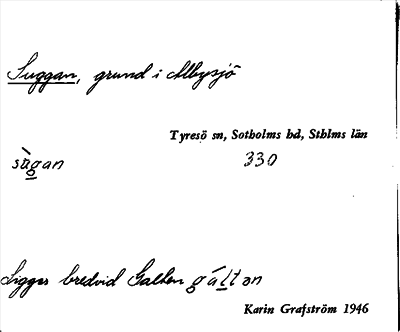 Suggan, grund i Albysjö
Tyresö sn, Sotholms hd, Sthlms län
sùgan 330
Ligger bredvid Galten gáltən
Karin Grafström 1946